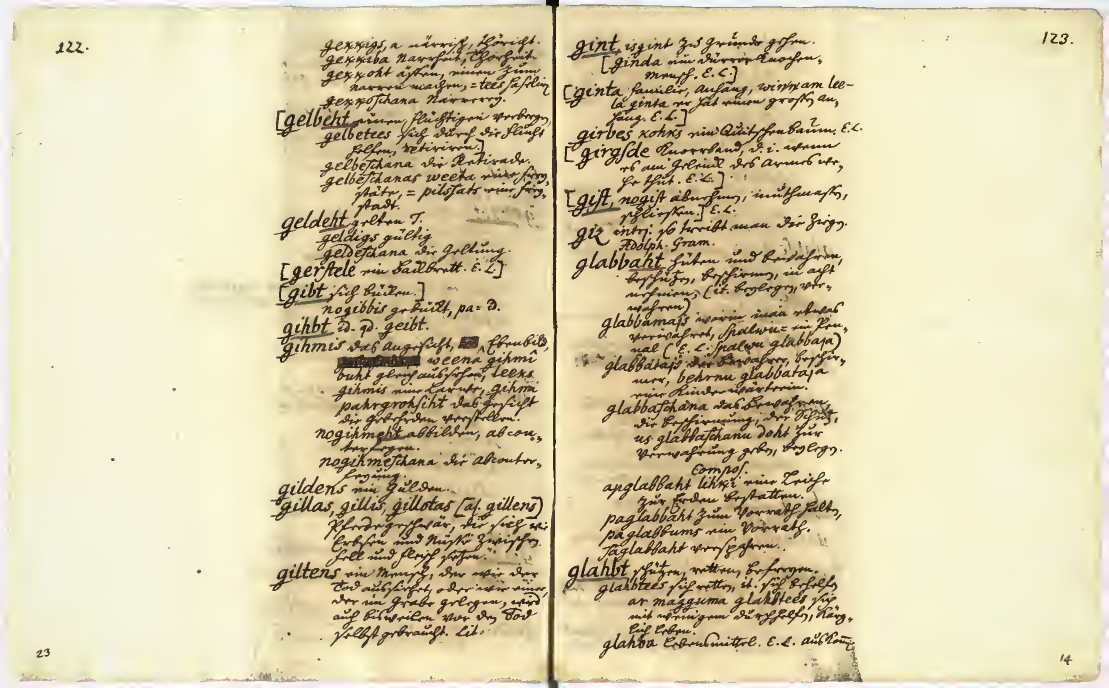 122.
gekkigs, a närrisch, thöricht.
gekkiba Narrheit, Thorheit
gekkoht äffen, einen zum
narren machen, = tees faseln
gekkoschana Narrerey.
[gelbeht einen, flüchtigen verbergen,
gelbetees sich durch die Flucht
helfen, retiriren.]
gelbeschana die Retirade.
gelbeschanas weeta eine frey,
stäte, = pilssats eine frey,
stadt.
geldeht gelten T.
geldigs gültig
geldeschana die Geltung.
[gerstele ein Badbrett. E. L]
[gibt sich büken.]
nogibbis gebükt, pa= d.
gihbt qd. geibt.
gihmis das Angesicht, Ebenbild,
weena gihmî
buht gleich aussehen, leeks
gihmis eine Larve, gihmi
pahrgrohsiht das Gesicht
die Geberden verstellen.
nogihmeht abbilden, abcon,
terfeyen.
nogihmeschana die Abconter,
feyung.
gildens ein Gülden.
gillas, gillis, gillotas [al. gillens]
Pferdegeschwär, die sich wie
Erbsen und Nüsse zwischen
Fell und Fleisch setzen.
giltens ein Mensch, der wie der
Tod aussiehet, oder wie einer,
der im Grabe gelegen, wird
auch bisweilen vor den Tod
selbst gebraucht. Lit.
23
123.
gint, isgint zu Grunde gehen.
[ginda ein dürrer Knochen,
mensch. E. L.]
[ginta familie, Anhang, winnam lee-
la ginta er hat einen grossen An,
hang. E. L.]
girbes kohks ein Quitschenbaum. E. L.
[girgsde Knorrband, d. i. wenn
es am Gelenk des Armes we,
he thut. E. L.]
[gist, nogist abnehmen, muthmassen,
schliessen.] E. L.
giz interj: so treibt man die Ziegen
Adolph. Gram.
glabbaht hüten und bewahren,
beschützen, beschirmen, in acht
nehmen, (it. beylegen, ver,
wahren)
glabbamais worin man etwas
verwahret, spalwu= ein Pen,
nal (E. L. spalwu glabbaja)
glabbatais der Bewahrer, beschir,
mer, behrnu glabbataja
eine Kinderwärterin.
glabbaschana das Bewahren,
die Beschirmung, der Schutz,
us glabbaschanu doht zur
Verwahrung geben, beylegen.
Compos.
apglabbaht lihki eine Leiche
zur Erden bestatten.
paglabbaht zum Vorrath halten,
paglabbums ein Vorrath.
saglabbaht verspahren.
glahbt schützen, retten, befreyen.
glahbtees sich retten, it. sich behelfen
ar masguma glahbtees sich
mit wenigem durchhelfen, käng,
lich leben.
glahba Lebensmittel. E. L. auskom,
14